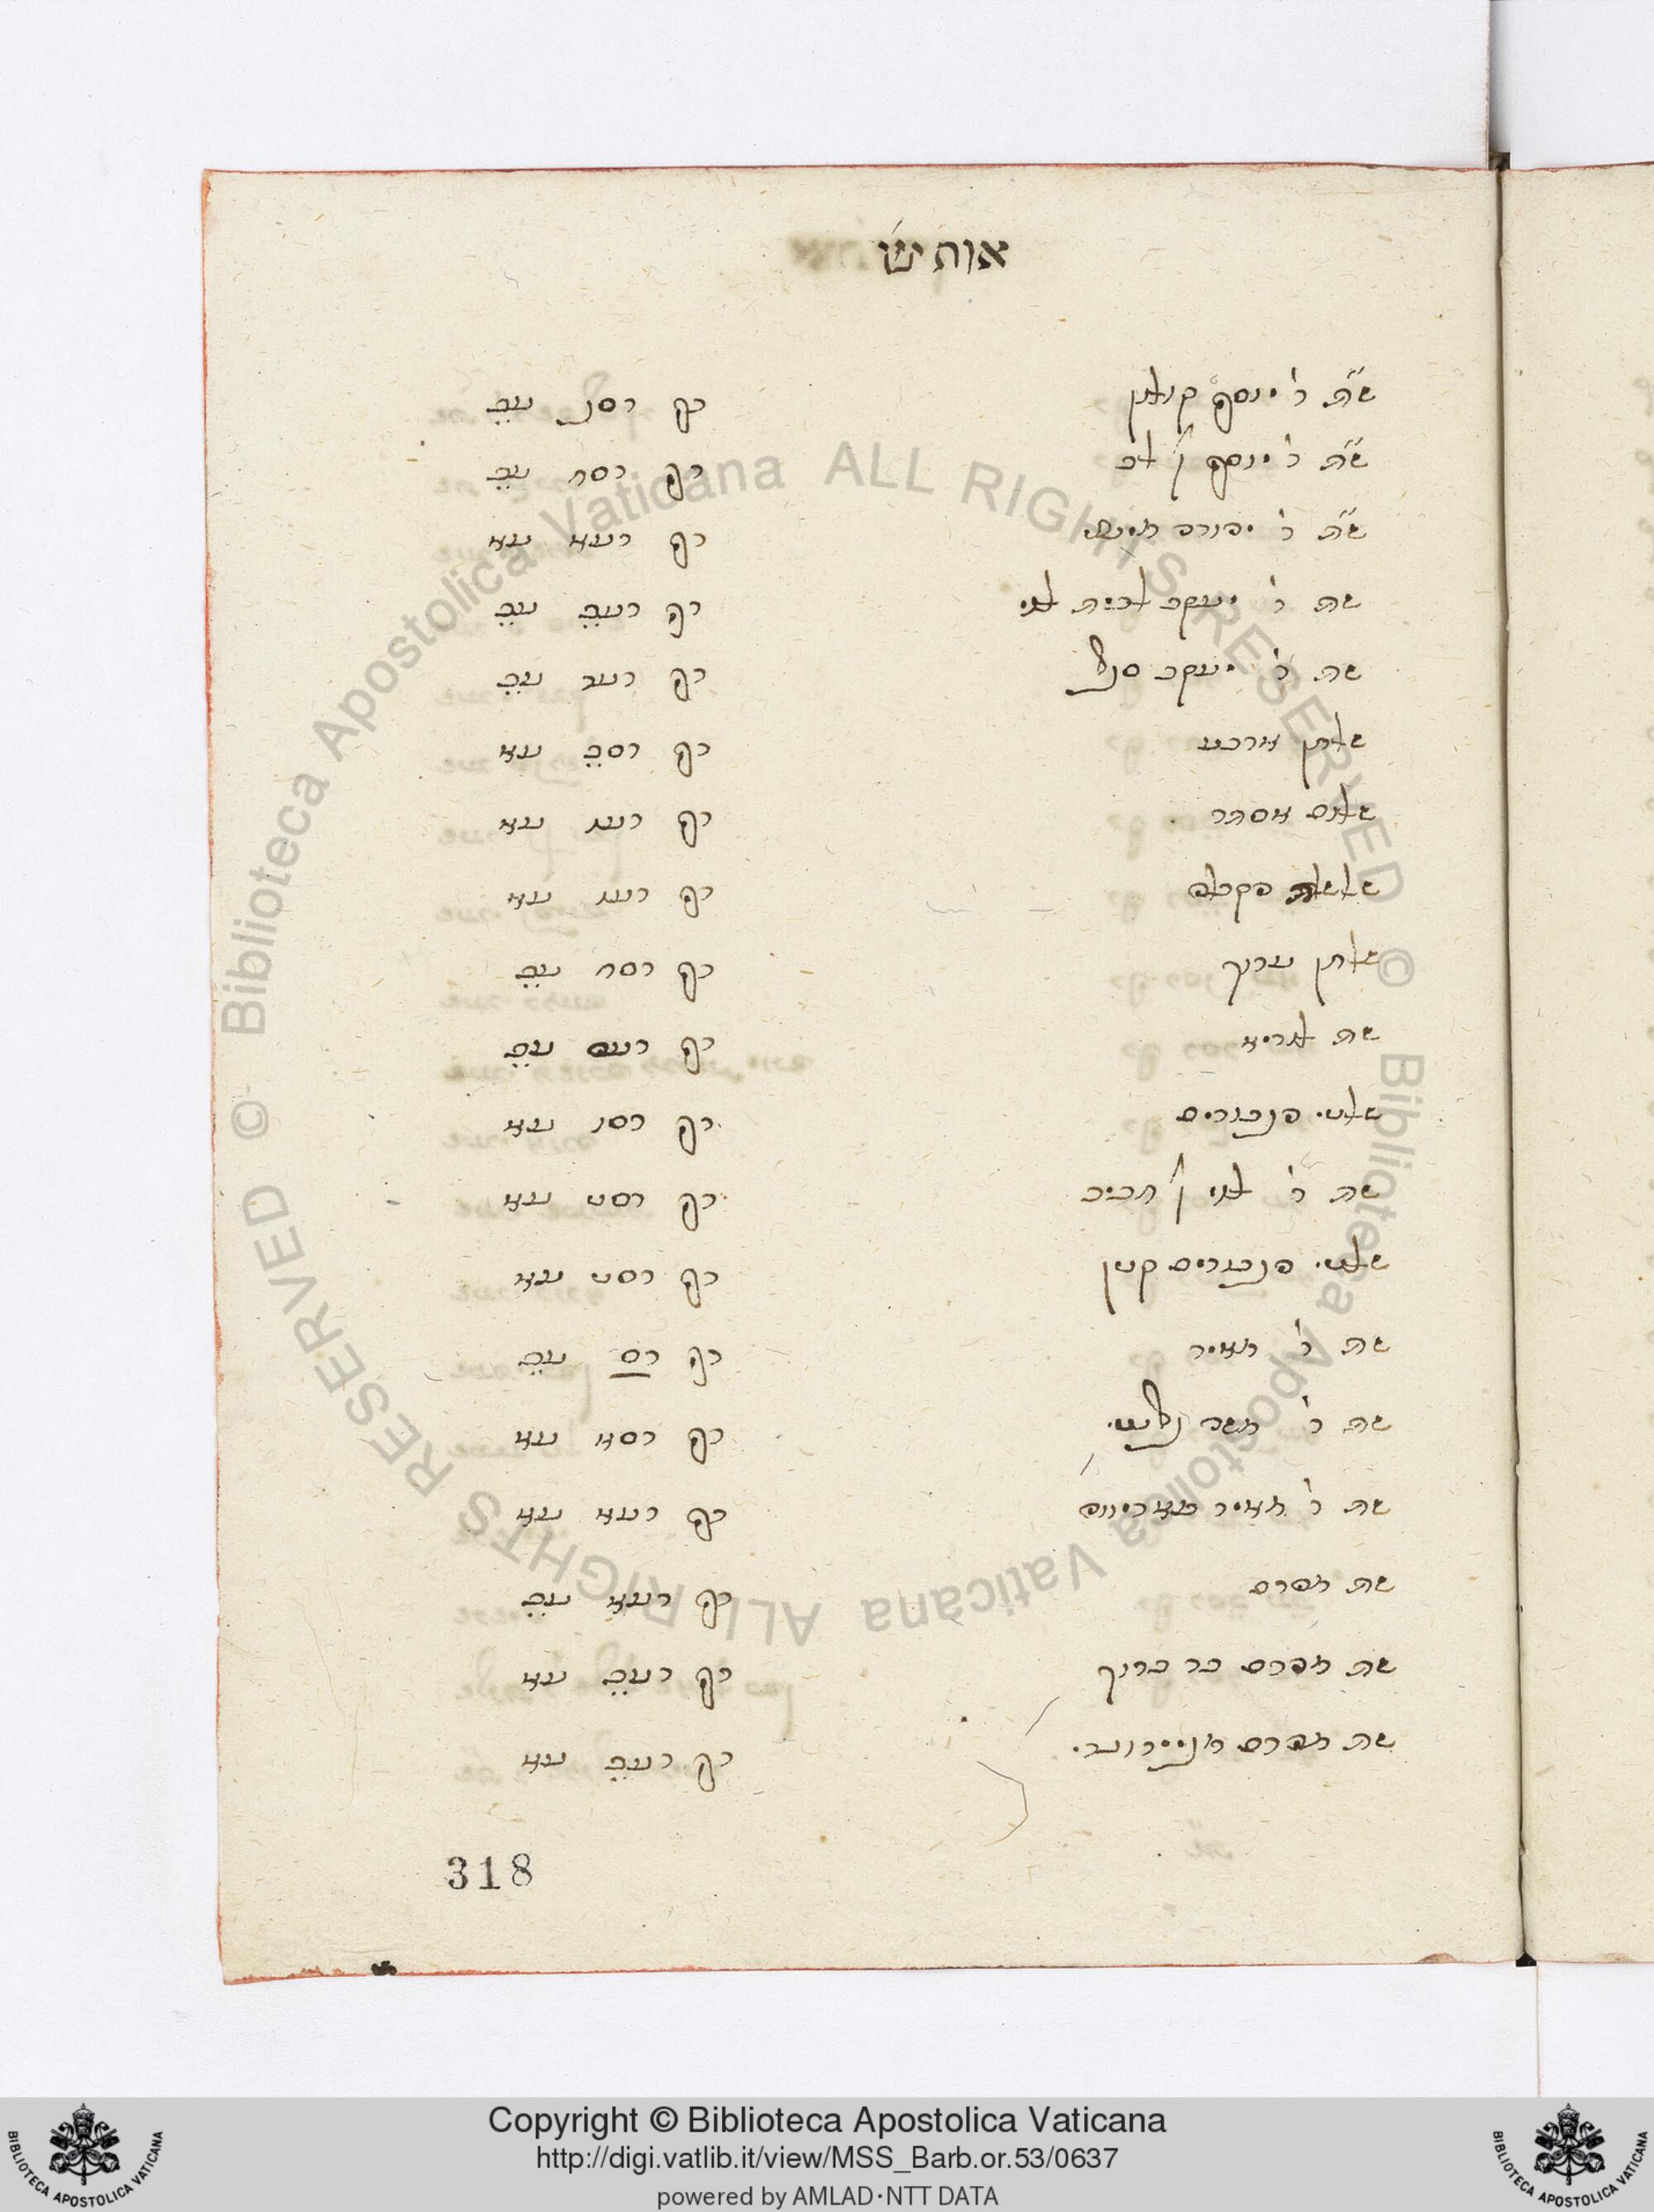 אות ש
ש״ת ר׳ יוסף קולון דף רסז ע״ב
ש״ת ר׳ יוסף ן׳ לב דף רסח ע״ב
ש״ת ר׳ יהודה מינץ דף רעא ע״א
שת ר׳ יעקב לבית לוי דף רעב ע״ב
שת ר׳ יעקב סגל דף רעב ע״ב
שלחן ארבע דף רסב ע״א
שלום אסתר דף רעג ע״א
שלשלת הקבלה דף רעג ע״א
שלחן ערוך דף רסח ע״ב
שת דף ע״ב
שלטי הגבורים דף רסו ע״א
שת ר׳ לוי ן׳ חביב דף רסט ע״א
שלטי הגבורים קטן דף רסט ע״א
שת ר׳ מאיר דף רס ע״ב
שת ר׳ משה דף רסא ע״א
שת ר׳ מאיר דף רעא ע״א
שת מהרם דף רעא ע״ב
שת מהרם בר ברוך דף רעב ע״א
שת מהרם דף רעב ע״א
318
© Biblioteca Apostolica Vaticana ALL RIGHTS RESERVED © Biblioteca Apostolica Vaticana ALL RIGHTS RESERVED
Copyright © Biblioteca Apostolica Vaticana
http://digi.vatlib.it/view/MSS_Barb.or.53/0637
powered by AMLAD·NTT DATA
BIBLIOTECA APOSTOLICA VATICANA
BIBLIOTECA APOSTOLICA VATICANA